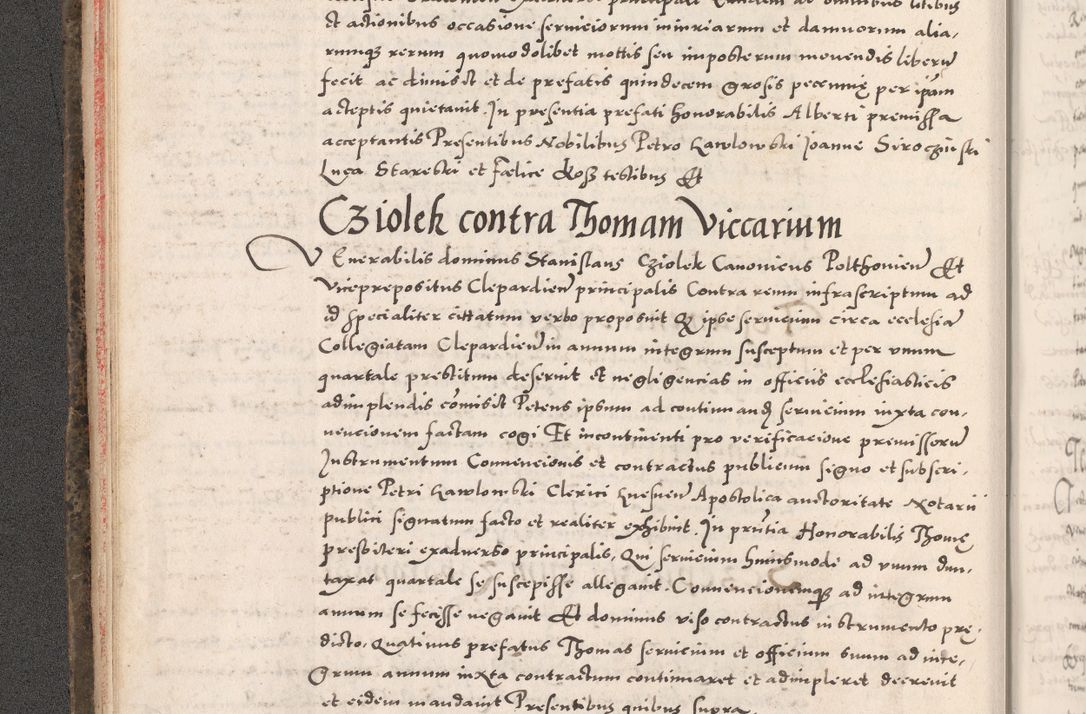 et actionibus occasione serviciorum iniuriarum et damnorum alia,
rumq3 rerum quomodolibet mottis seu imposterum movendis liberu
fecit ac dimisit et de prefatis quindecem grosis pecunię per ipam
acteptis quietavit. In presentia prefati honorabilis Alberti premissa
acceptantis Presentibus Nobilibus Petro Kawlowski Joanne Siroczinski
Luca Stareski et Fælice Kosz testibus Et
Cziolek contra Thomam Viccarium
VEnerabilis dominus Stanislaus Cziolek Canonicus Polthovien Et
Viceprepositus Clepardien principalis Contra reum infrascriptum ad
id specialiter cittatum verbo proposuit Q ipse servicium circa ecclesia
Collegiatam Clepardien in annum integrum susceptum et per unum
quartale prestitum deseruit et negligencias in officiis ecclesiasticis
adimplendis comisit Petens ipsum ad continuand servicium iuxta con,
vencionem factam cogi Et incontinenti pro verificacione premissoru
Instrumentum Convencionis et contractus publicum signo et subscri,
ptione Petri Kawlowski Clerici Gnesnen Apostolica auctoritate Notarii
publici signatum facto et realiter exhibuit. In pntia Honorabilis Thomę
presbiteri exadverso principalis, Qui servicium huiusmodi ad unum dun,
taxat quartale se suscepisse allegavit. Convencionemq3 ad integrum
annum se fecisse negavit Et dominus viso contractus instrumento prę,
dicto, Quatinus prefatus Thomas servicium et officium suum ad inte,
grum annum iuxta contractum continuaret et adimpleret decrevit
et eidem mandavit Presentibus quibus supra.